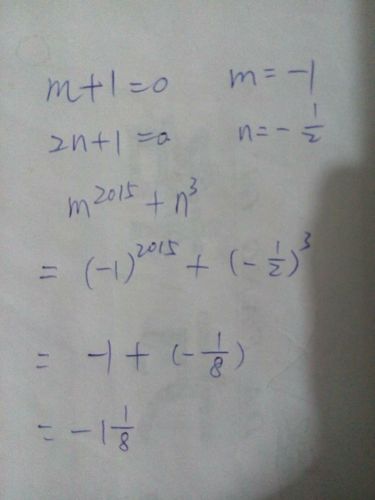 m+1=0 m=-1
2n+1=0 n=-1/2
m^2015+n^3
=(-1)^2015+(-1/2)^3
= -1+(-1/8)
=-1 1/8